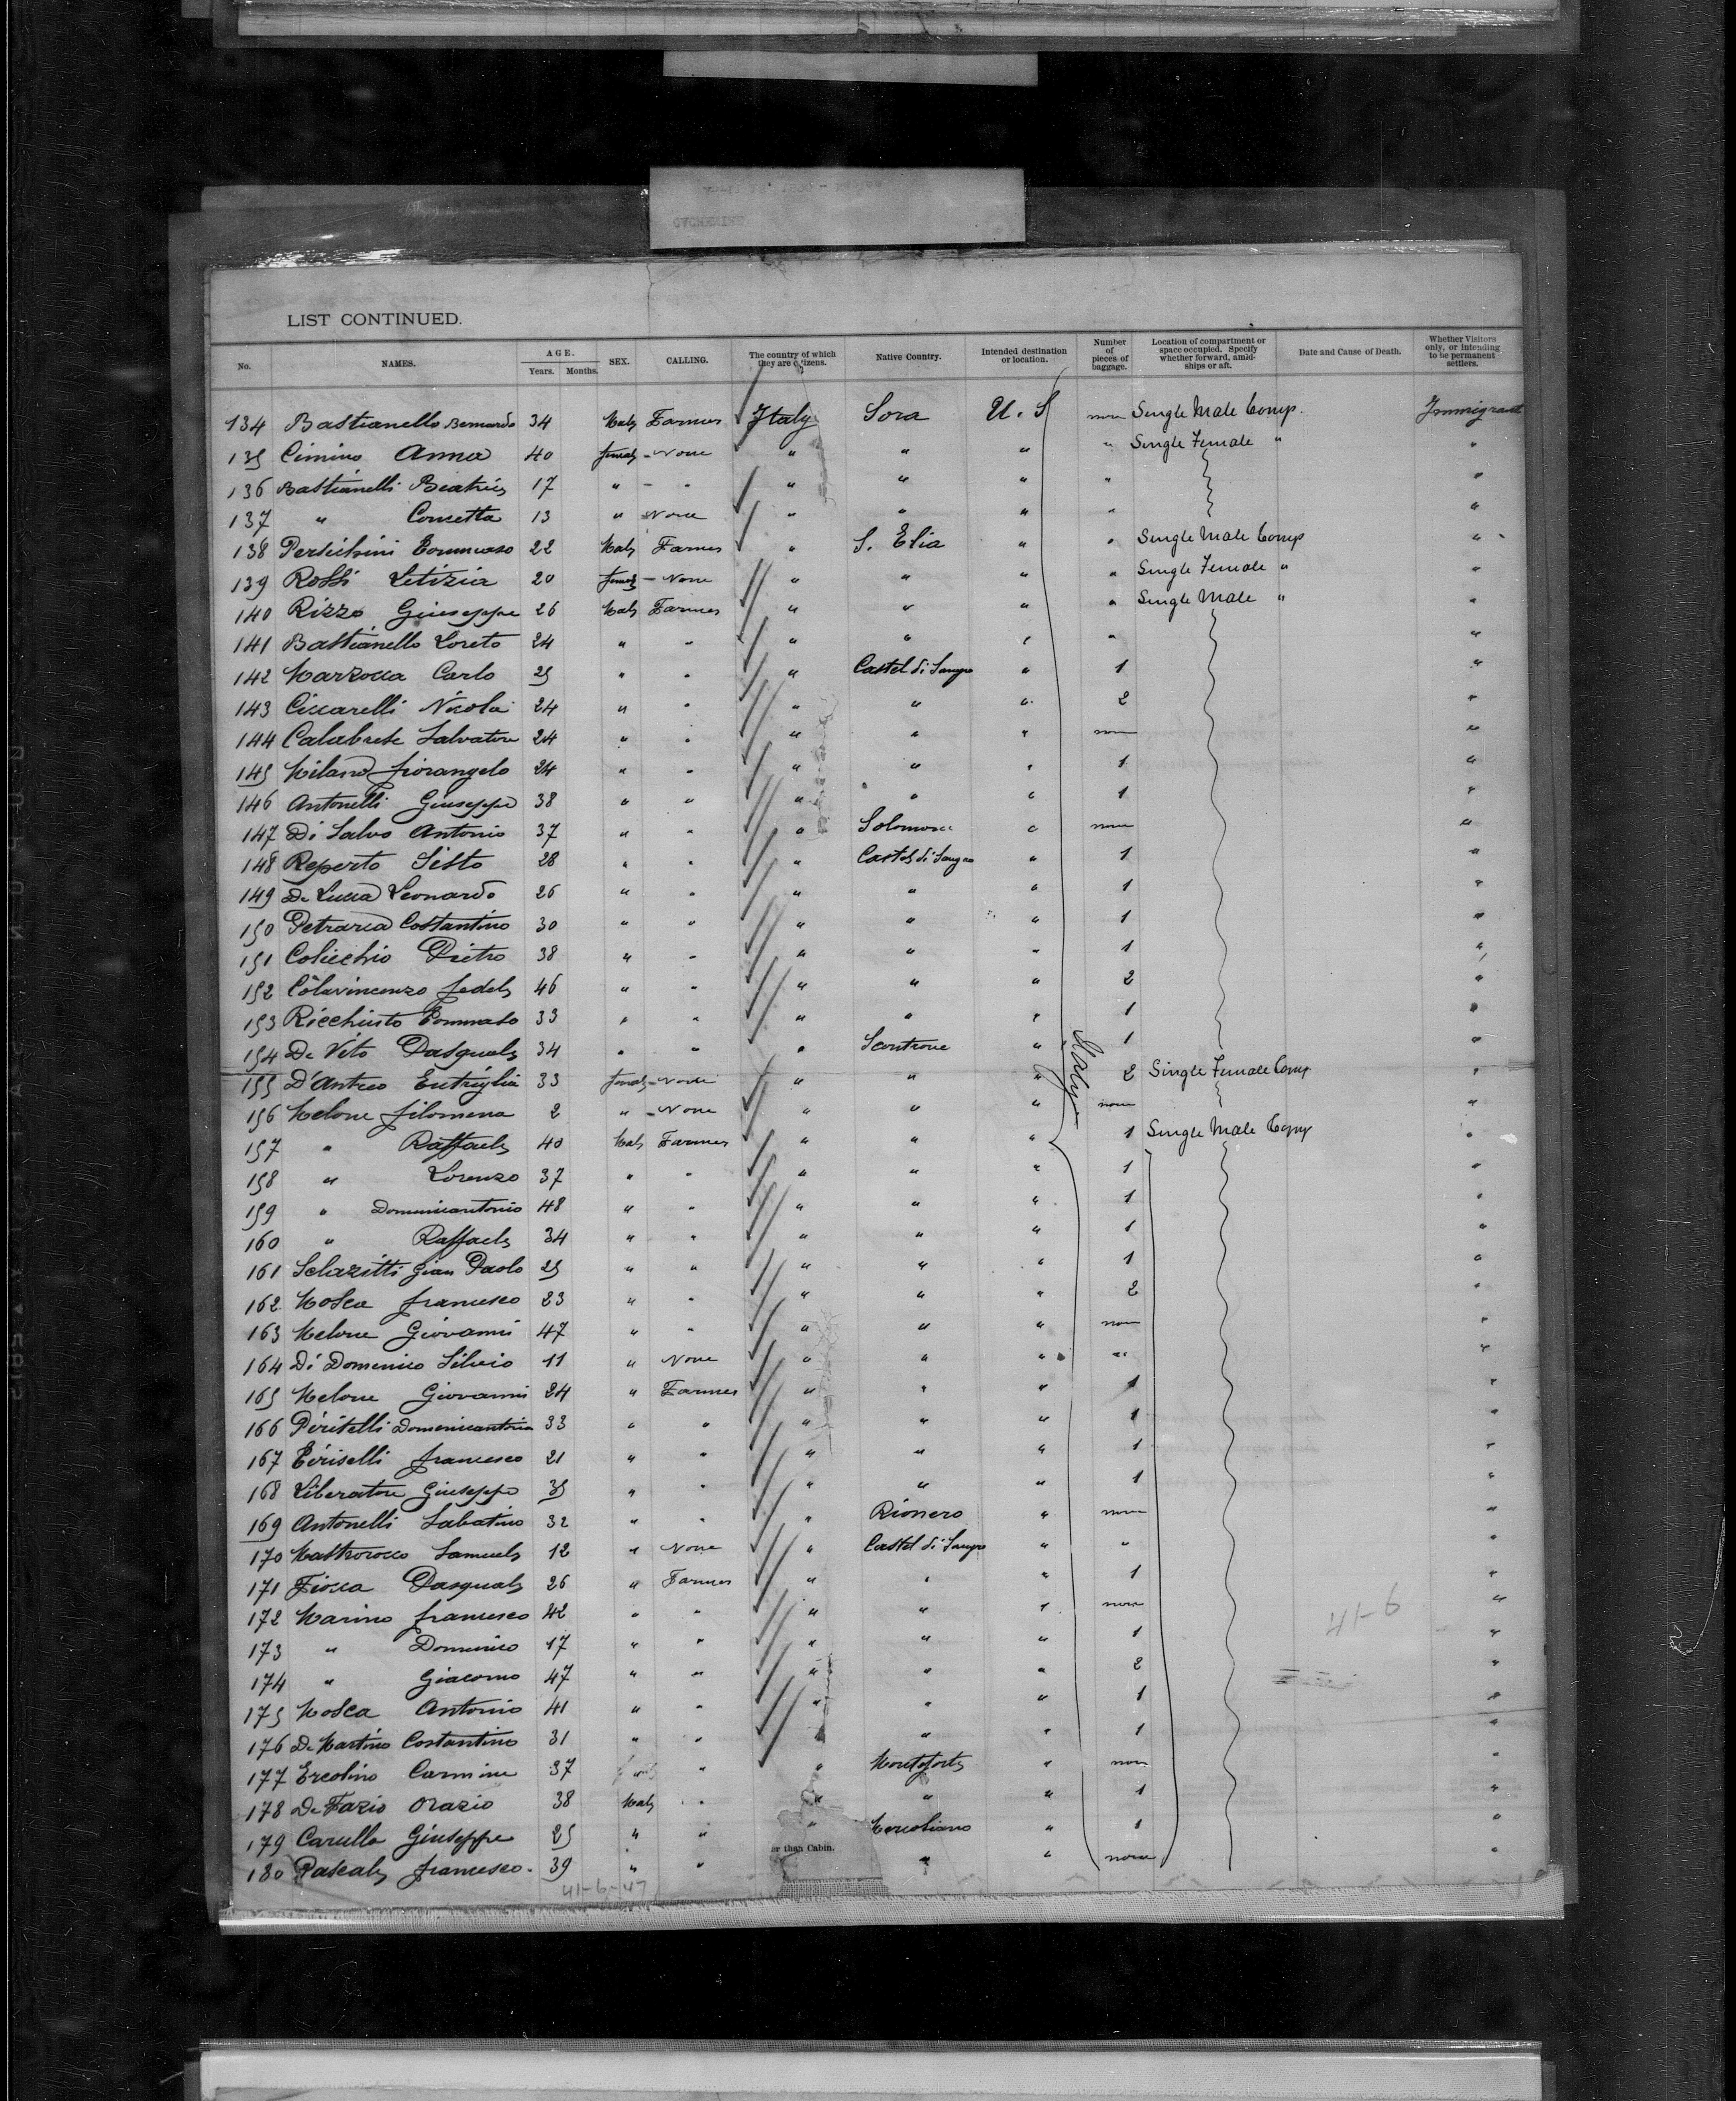 LIST CONTINUED.
No. NAMES. AGE. Years. Months. SEX. CALLING. The country of which they are citizens. Native Country. Intended destination or location. Number of pieces of baggage. Location of compartment or space occupied. Specify whether forward, amidships or aft. Date and Cause of Death. Whether Visitors only, or intending to be permanent settlers.
134 Bastianello Bernardo 34 Male Farmer Italy Sora U. S none Single Male Comp. Immigrant
135 Cimino Anna 40 female - None " " " " Single Female " "
136 Bastianelli Beatrice 17 " - " " " " " "
137 " Concetta 13 " None " " " " "
138 Tommaso 22 Male Farmer " S. Elia " " Single Male Comp "
139 Rossi Letizia 20 female - None " " " " Single Female " "
140 Rizzo Giuseppe 26 Male Farmer " " " " Single Male " "
141 Bastianello Loreto 24 " " " " " " "
142 Marzocca Carlo 25 " " " Castel di Sangro " 1 "
143 Ciccarelli Nicola 24 " " " " " 2 "
144 Calabrese Salvatore 24 " " " " " none "
145 Milano fiorangelo 24 " " " " " 1 "
146 Antonelli Giuseppe 38 " " " " " 1 "
147 Di Salvo Antonio 37 " " " " none "
148 Reperto Sisto 28 " " " Castel di Sangro " 1 "
149 De Lucca Leonardo 26 " " " " " 1 "
150 Petrarca Costantino 30 " " " " " 1 "
151 Colicchio Pietro 38 " " " " " 1 "
152 Colavincenzo fedele 46 " " " " " 2 "
153 Ricchiuto Tommaso 33 " " " " " 1 "
154 De Vito Pasquale 34 " " " Scontrone " 1 "
155 D'Antreo 33 female - None " " " 2 Single Female Comp "
156 Melone filomena 2 " - None " " " none "
157 " Raffaele 40 Male Farmer " " " 1 Single Male Comp "
158 " Lorenzo 37 " " " " " 1 "
159 " Domenicantonio 48 " " " " " 1 "
160 " Raffaele 34 " " " " " 1 "
161 Gian Paolo 25 " " " " " 1 "
162 Mosca francesco 23 " " " " " 2 "
163 Melone Giovanni 47 " " " " " none "
164 Di Domenico Silvio 11 " None " " " " "
165 Melone Giovanni 24 " Farmer " " " 1 "
166 Piritelli Domenicantonio 33 " " " " " 1 "
167 francesco 21 " " " " " 1 "
168 Liberatore Giuseppe 35 " " " " " 1 "
169 Antonelli Sabatino 32 " " " Rionero " none "
170 Mastrorocco Samuele 12 " None " Castel di Sangro " " "
171 Fiocca Pasquale 26 " Farmer " " " 1 "
172 Marino francesco 42 " " " " " none "
173 " Domenico 17 " " " " " 1 "
174 " Giacomo 47 " " " " " 2 "
175 Mosca Antonio 41 " " " " " 1 "
176 De Martino Costantino 31 " " " " " 1 "
177 Ercolino Carmine 37 " " Monteforte " none "
178 De Fazio Orazio 38 Male " " " " 1 "
179 Carullo Giuseppe 25 " " " " 1 "
180 Pascale francesco. 39 " " " " none "
er than Cabin.
41-6
41-6-47